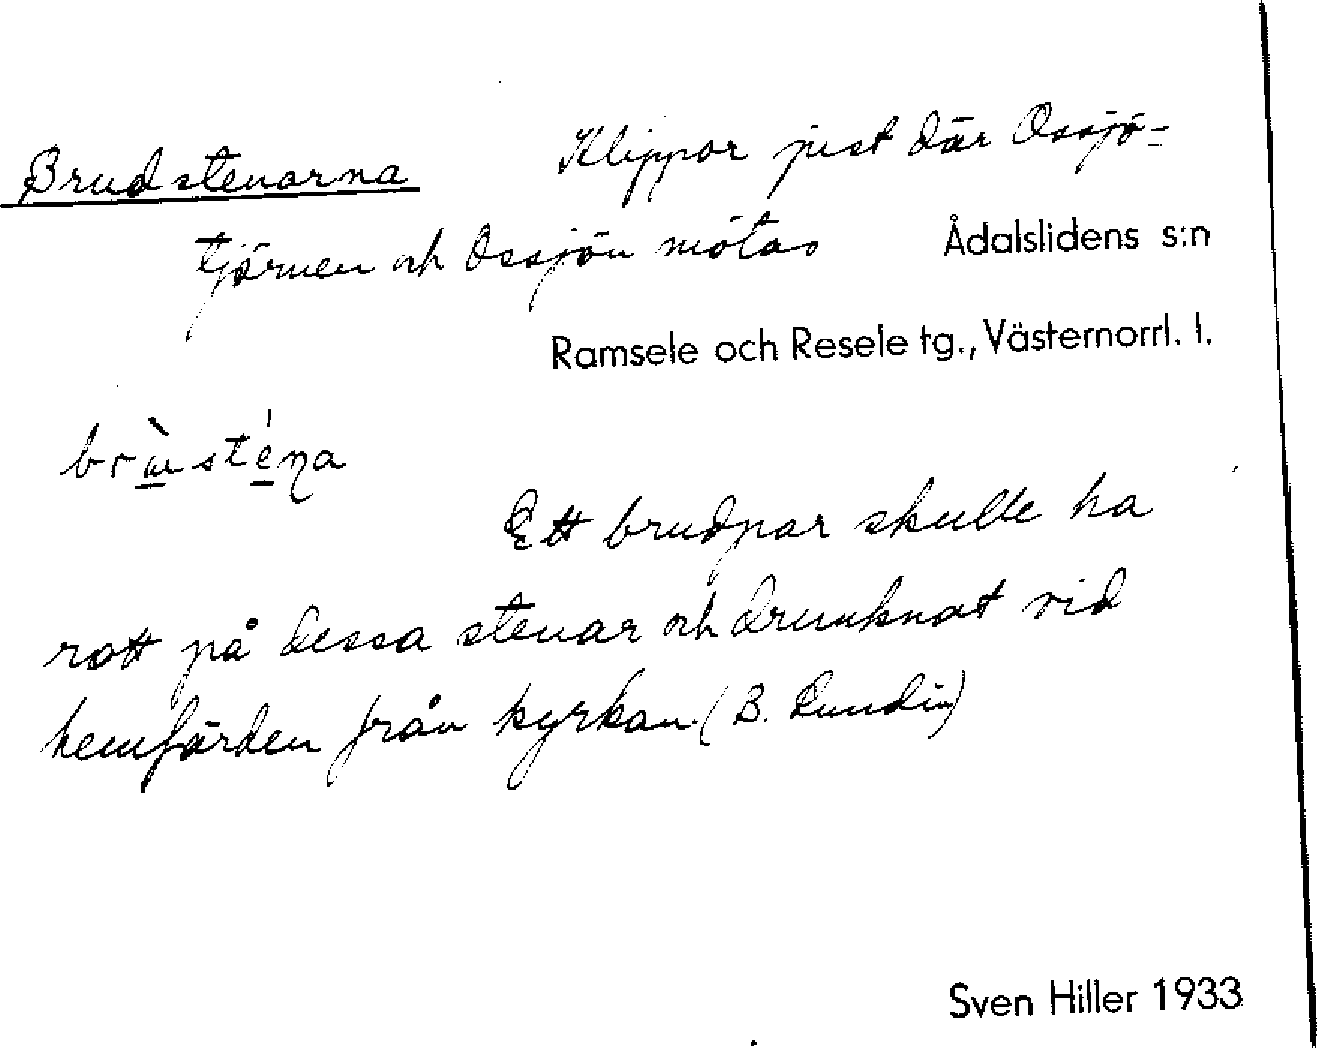 Brudstenarna Klippor just där Ossjö-
tjärnen och Ossjön mötas Ådalslidens s:n
Ramsele och Resele tg., Västernorrl. l.
Ett brudpar skulle ha
rott på dessa stenar och drunknat vid
hemfärden från kyrkan. (B. Lundin)
Sven Hiller 1933